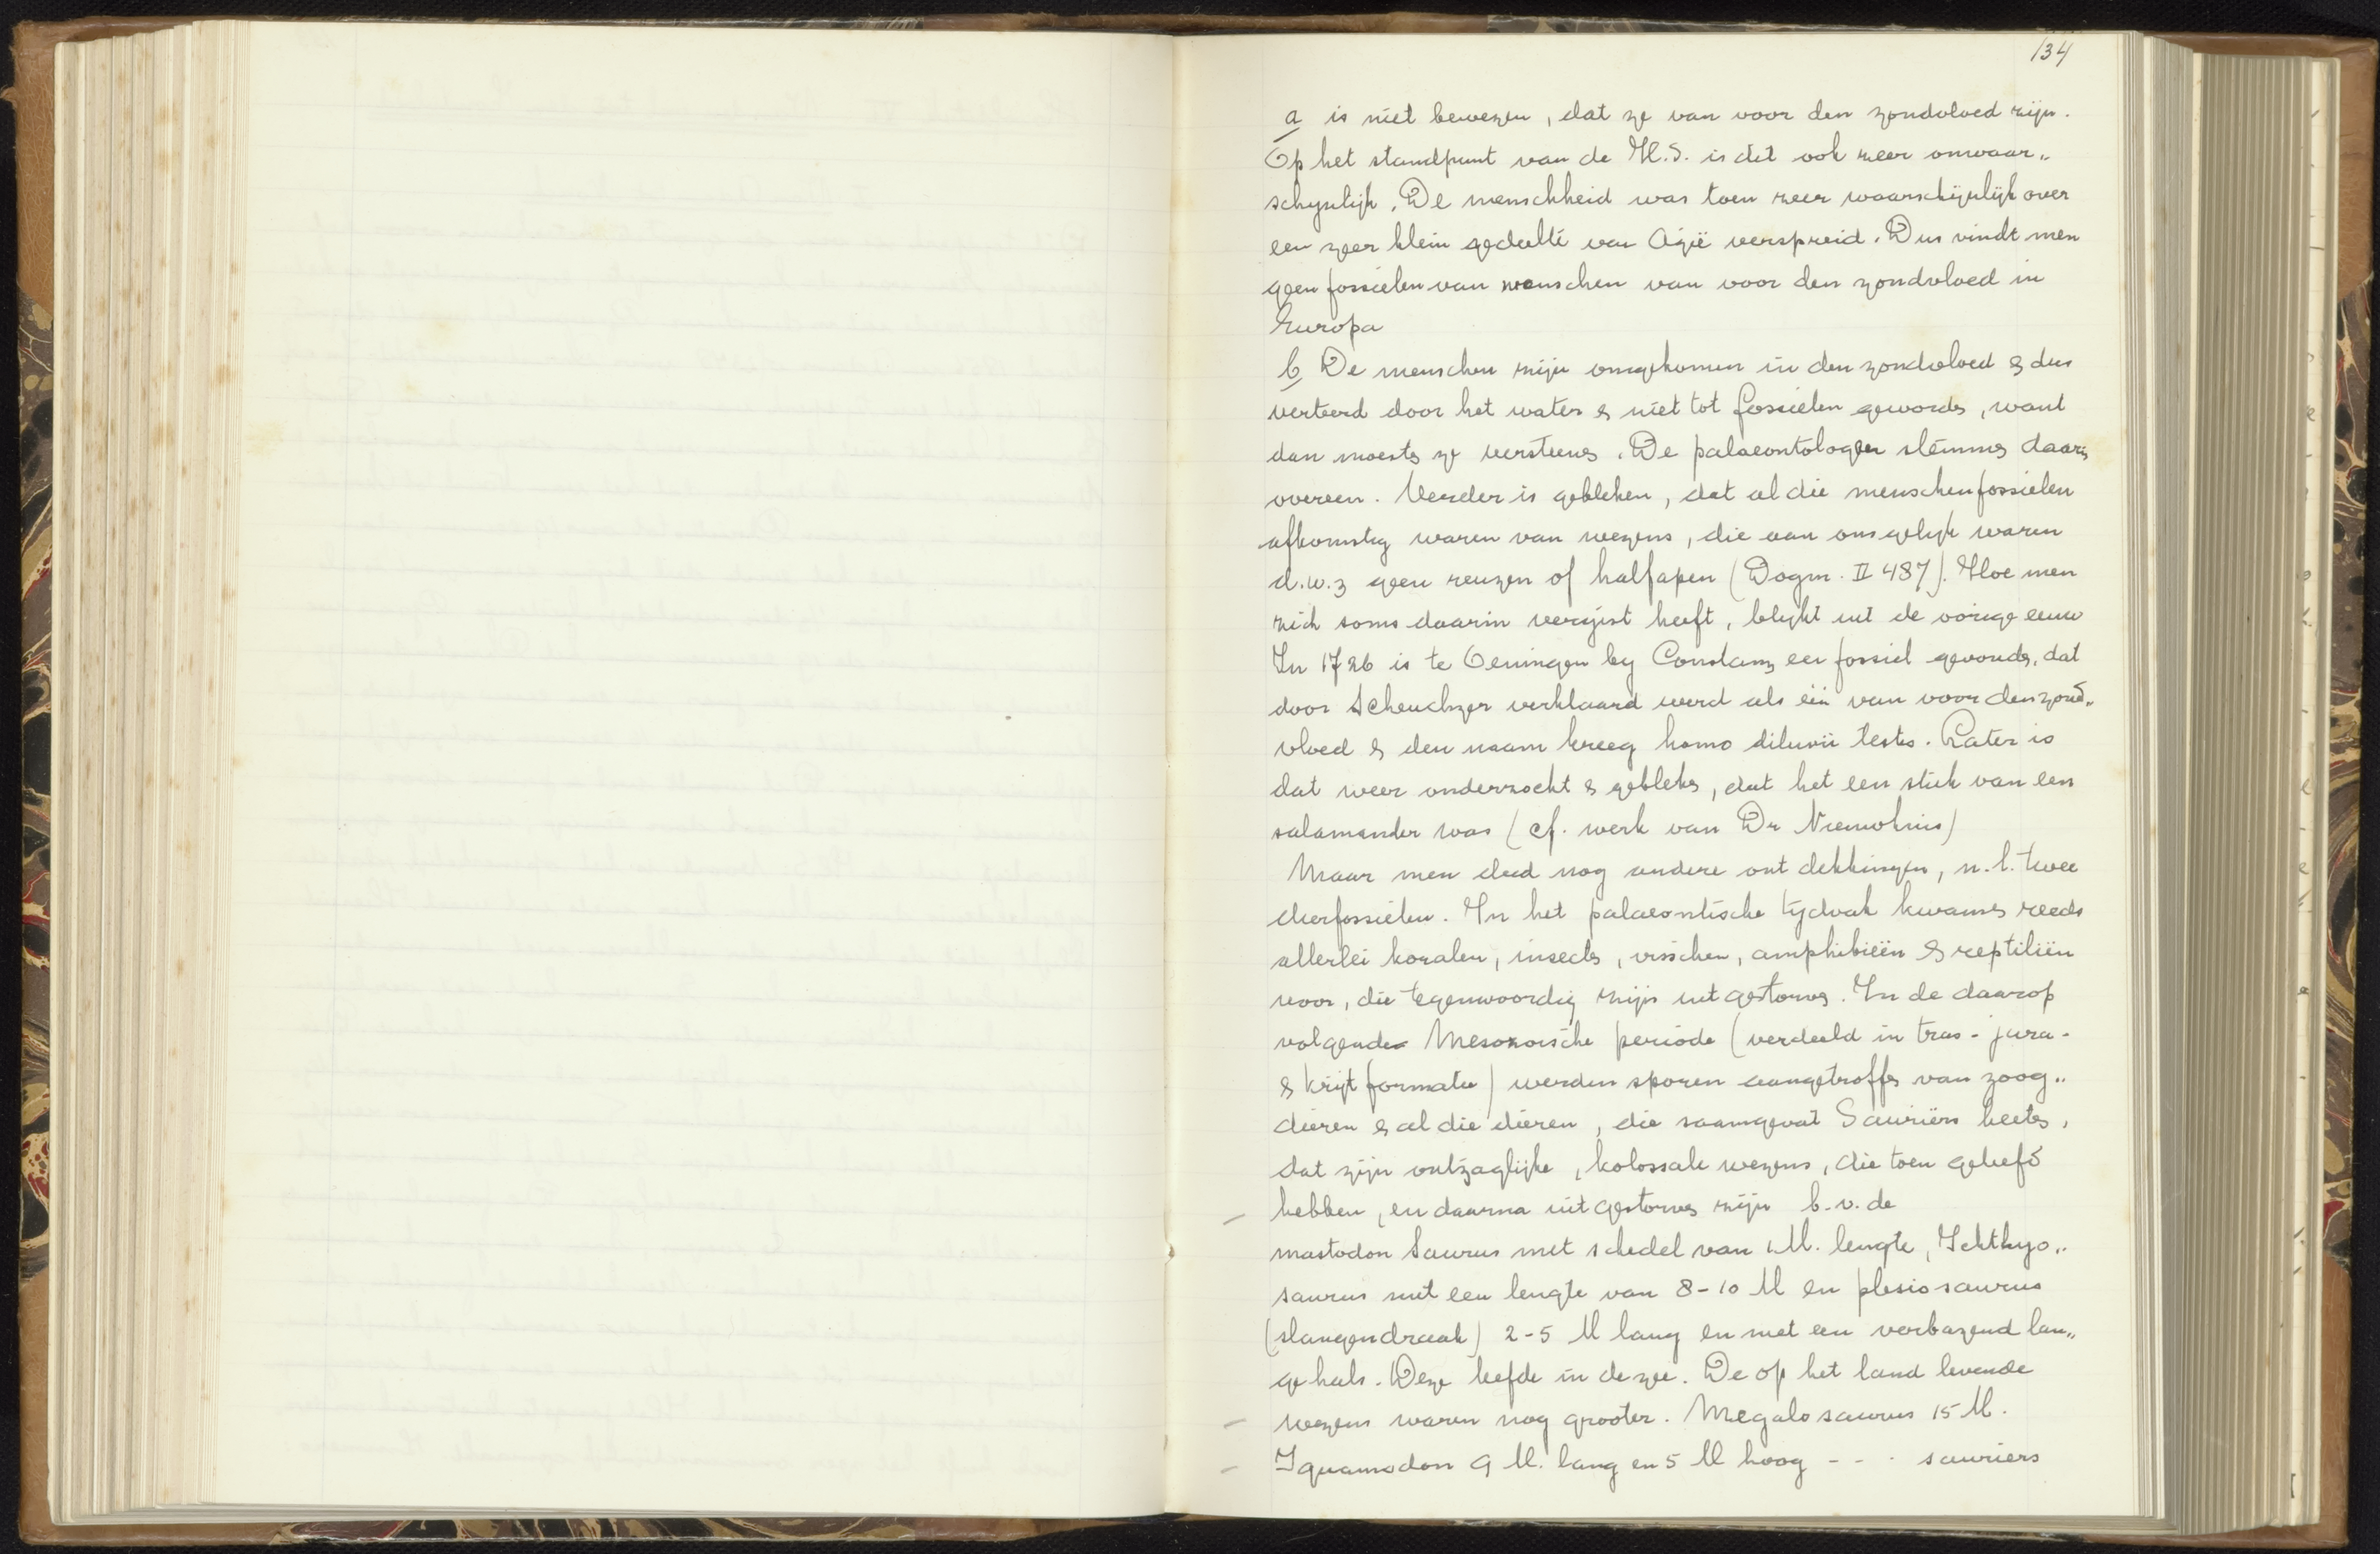 134
a is niet bewezen, dat ze van voor den zondvloed zijn.
Op het standpunt van de H.S. is dit ook zeer onwaar„
schynlijk. De menschheid was toen zeer waarschijnlijk over
een zeer klein gedeelte van Azië verspreid. Dus vindt men
geen fossielen van menschen van voor den zondvloed in
Europa
b De menschen zijn omgekomen in den zondvloed & dus
verteerd door het water & niet tot fossielen geworden, want
dan moesten ze versteenen. De palaeontologen stemmen daarin
overeen. Verder is gebleken, dat al die menschenfossielen
afkomstig waren van wezens, die aan ons gelijk waren
d.w.z geen reuzen of halfapen (Dogm. II 487). Hoe men
zich soms daarin vergist heeft, blykt uit de vorige eeuw
In 1726 is te Oeningen by Constanz een fossiel gevonden, dat
door Scheuchzer verklaard werd als één van voor den zond„
vloed & den naam kreeg homo diluvii testis. Later is
dat weer onderzocht & gebleken, dat het een stuk van een
salamander was (cf. werk van Dr
Maar men deed nog andere ontdekkingen, n.l. twee
dierfossielen. In het palaeontische tydvak kwamen reeds
allerlei koralen, insecten, visschen, amphibieën & reptiliën
voor, die tegenwoordig zijn uitgestorven. In de daarop
volgende Mesozoische periode (verdeeld in trias- jura-
& krijtformatie) werden sporen aangetroffen van zoog„
dieren & al die dieren, die saamgevat Sauriërs heeten,
dat zijn ontzaglijke, kolossale wezens, die toen geleefd
hebben, en daarna uitgestorven zijn b.v. de
mastodon Saurus met schedel van 1 M. lengte, Ichthyo„
saurus met een lengte van 8-10 M en plesiosaurus
(slangendraak) 2-5 M lang en met een verbazend lan„
ge hals. Deze leefde in de zee. De op het land levende
wezens waren nog grooter. Megalosaurus 15 M.
Iguanodon 9 M. lang en 5 M hoog - - - sauriers